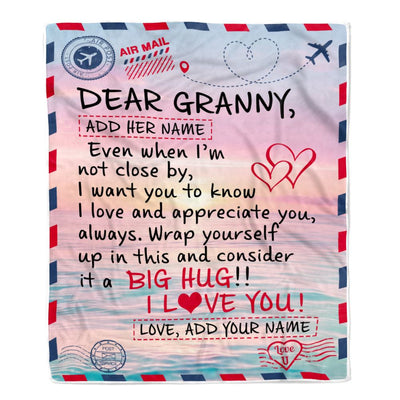 AIR MAIL
DEAR GRANNY,
ADD HER NAME
Even when I'm
not close by,
I want you to know
I love and appreciate you,
always. Wrap yourself
up in this and consider
it a BIG HUG!!
I L❤VE YOU!
LOVE, ADD YOUR NAME
POST
Love
U